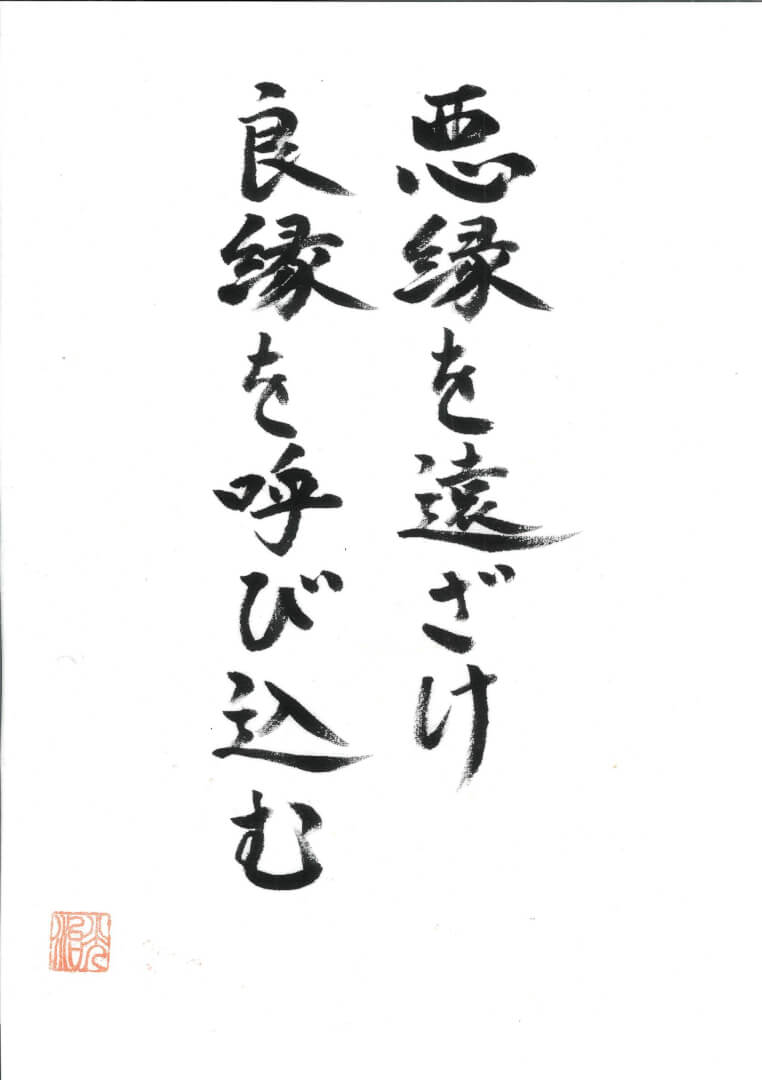 悪縁を遠ざけ
良縁を呼び込む